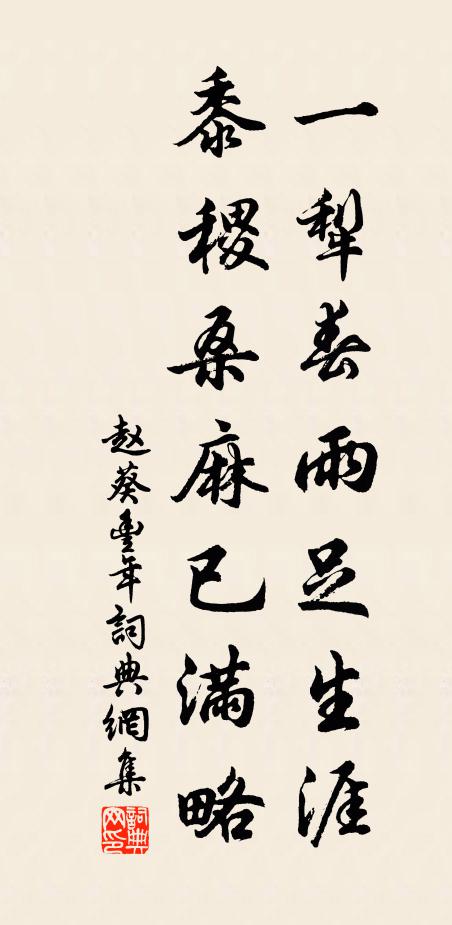 一犁春雨足生涯
黍稷桑麻已满略
赵葵豊年詞典網集
詞典
网印